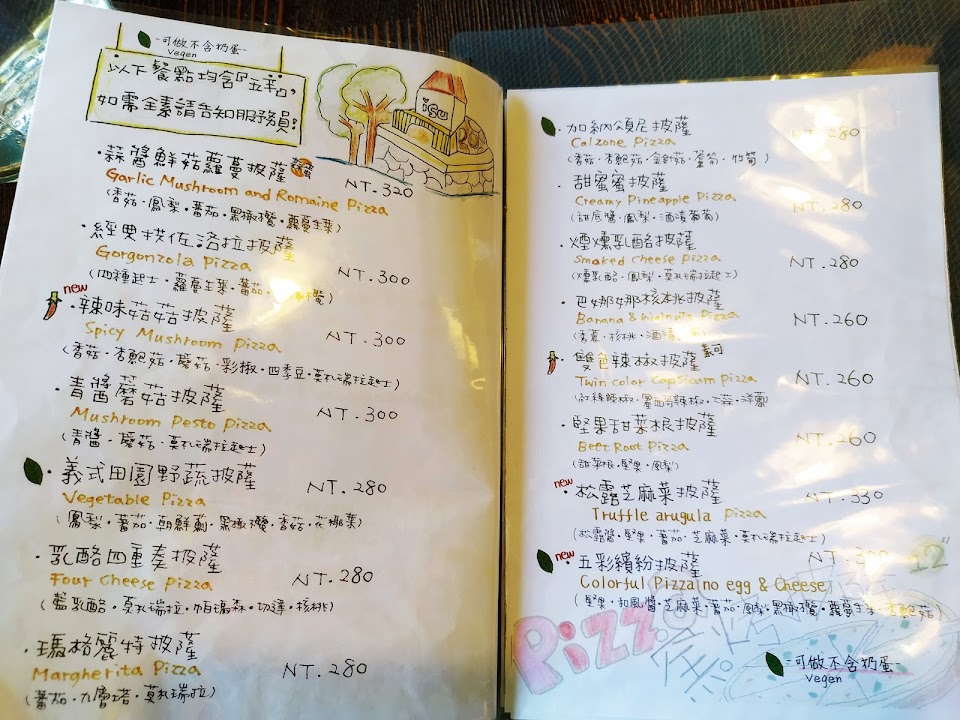 -可做不含奶蛋-
Vegen
以下餐點均含『五辛』,
如需全素請告知服務員!
isu
·蒜醬鮮菇蘿蔓披薩 NT.320
Garlic Mushroom and Romaine Pizza
(香菇·鳳梨·蕃茄·黑橄欖·蘿蔓生菜)
·經典拱佐洛拉披薩 NT.300
Gorgonzola Pizza
(四種起士·蘿蔓生菜·蕃茄
new
·辣味菇菇披薩 NT.300
Spicy Mushroom Pizza
(香菇·杏鮑菇·蘑菇·彩椒·四季豆·莫札瑞拉起士)
·青醬蘑菇披薩 NT.300
Mushroom Pesto Pizza
(青醬·蘑菇·莫札瑞拉起士)
·義式田園野蔬披薩 NT.280
Vegetable Pizza
(鳳梨·蕃茄·朝鮮薊·黑橄欖·香菇·花椰菜)
·乳酪四重奏披薩 NT.280
Four Cheese Pizza
(藍乳酪·莫札瑞拉·帕瑪森·切達·核桃)
·瑪格麗特披薩 NT.280
Margherita Pizza
(蕃茄·九層塔·莫札瑞拉)
·加納頌尼披薩 NT.280
Calzone Pizza
(香菇·杏鮑菇·金針菇·蘆筍·竹筍)
·甜蜜蜜披薩 NT.280
Creamy Pineapple Pizza
(甜底醬·鳳梨·酒漬葡萄)
·煙燻乳酪披薩 NT.280
Smoked Cheese Pizza
(燻乳酪·鳳梨·莫札瑞拉起士)
·巴娜娜核桃披薩 NT.260
Banana & Walnuts Pizza
(香蕉·核桃·酒漬
·雙色辣椒披薩 NT.260
Twin color Capsicum Pizza
·堅果甜菜根披薩 NT.260
Beet Root Pizza
(甜菜根·堅果·鳳梨)
new
·松露芝麻菜披薩 NT.330
Truffle arugula Pizza
(松露醬·堅果·蕃茄·芝麻菜·莫札瑞拉起士)
new
·五彩繽紛披薩 NT.300 12"
Colorful Pizza(no egg & Cheese)
(堅果·和風醬·芝麻菜·蕃茄·鳳梨·黑橄欖·蘿蔓生菜·杏鮑菇)
Pizza
-可做不含奶蛋-
Vegen